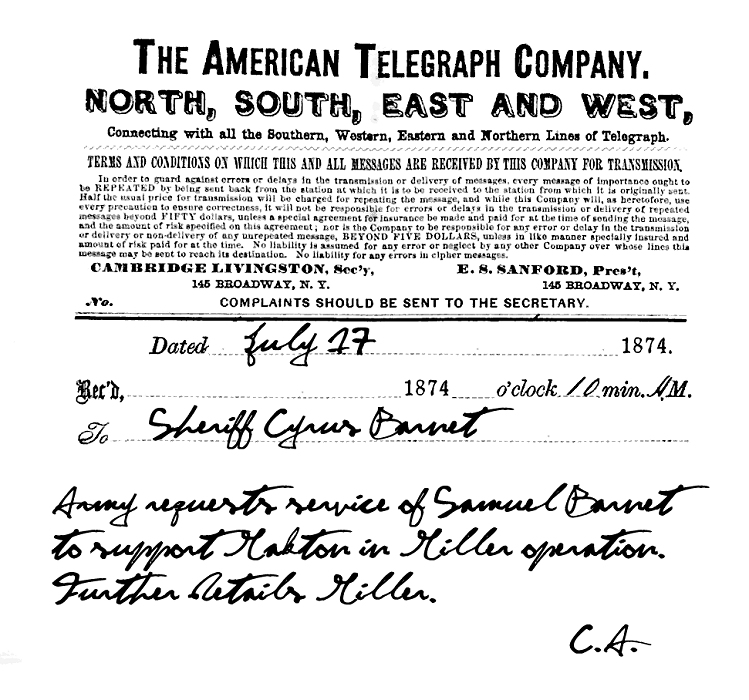 THE AMERICAN TELEGRAPH COMPANY.
NORTH, SOUTH, EAST AND WEST,
Connecting with all the Southern, Western, Eastern and Northern Lines of Telegraph.
TERMS AND CONDITIONS ON WHICH THIS AND ALL MESSAGES ARE RECEIVED BY THIS COMPANY FOR TRANSMISSION.
In order to guard against errors or delays in the transmission or delivery of messages, every message of importance ought to
be REPEATED by being sent back from the station at which it is to be received to the station from which it is originally sent.
Half the usual price for transmission will be charged for repeating the message, and while this Company will, as heretofore, use
every precaution to ensure correctness, it will not be responsible for errors or delays in the transmission or delivery of repeated
messages beyond FIFTY dollars, unless a special agreement for insurance be made and paid for at the time of sending the message,
and the amount of risk specified on this agreement; nor is the Company to be responsible for any error or delay in the transmission
or delivery or non-delivery of any unrepeated message, BEYOND FIVE DOLLARS, unless in like manner specially insured and
amount of risk paid for at the time. No liability is assumed for any error or neglect by any other Company over whose lines this
message may be sent to reach its destination. No liability for any errors in cipher messages.
CAMBRIDGE LIVINGSTON, Sec'y, E. S. SANFORD, Pres't,
145 BROADWAY, N. Y. 145 BROADWAY, N. Y.
No. COMPLAINTS SHOULD BE SENT TO THE SECRETARY.
Dated July 17 1874.
Rec'd, 1874 o'clock 10 min. A.M.
To Sheriff Cyrus Barnet
Army requests service of Samuel Barnet
to support in Miller operation.
Further details Miller.
C.A.